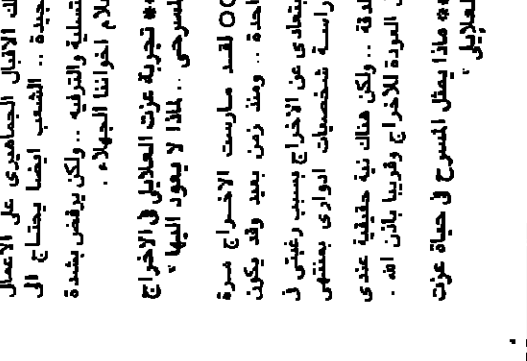 ك الاقبال الجماهيرى على الاعمال
جيدة .. الشعب ايضا يحتاج الى
تسلية والترفيه .. ولكن يرفض بشدة
لام اخواننا الجهلاء .
** تجربة عزت العلايلى فى الاخراج
لمسرحى .. لماذا لا يعود اليها ؟
OO لقد مارست الاخراج مرة
احدة .. ومنذ زمن بعيد وقد يكون
بتعادى عن الاخراج بسبب رغبتى فى
راسة شخصيات ادوارى بمنتهى
لدقة .. ولكن هناك نية حقيقية عندى
العودة للاخراج وقريبا باذن الله .
** ماذا يمثل المسرح فى حياة عزت
لعلايلى ؟